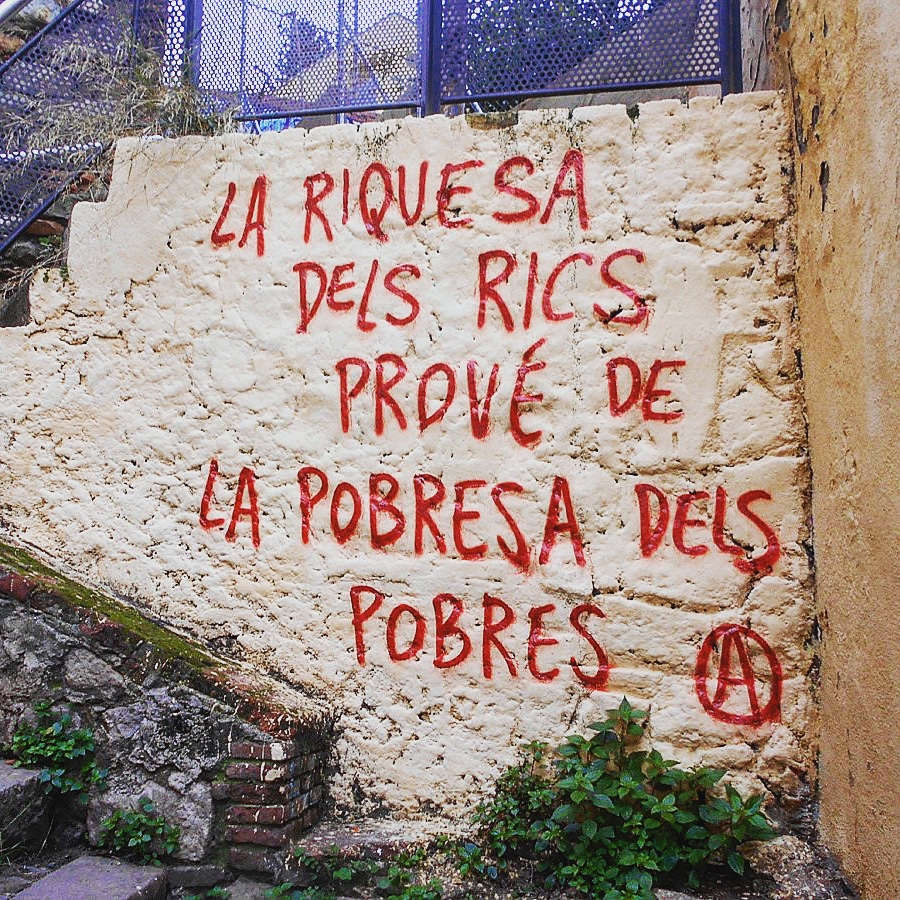 LA RIQUESA
DELS RICS
PROVÉ DE
LA POBRESA DELS
POBRES Ⓐ